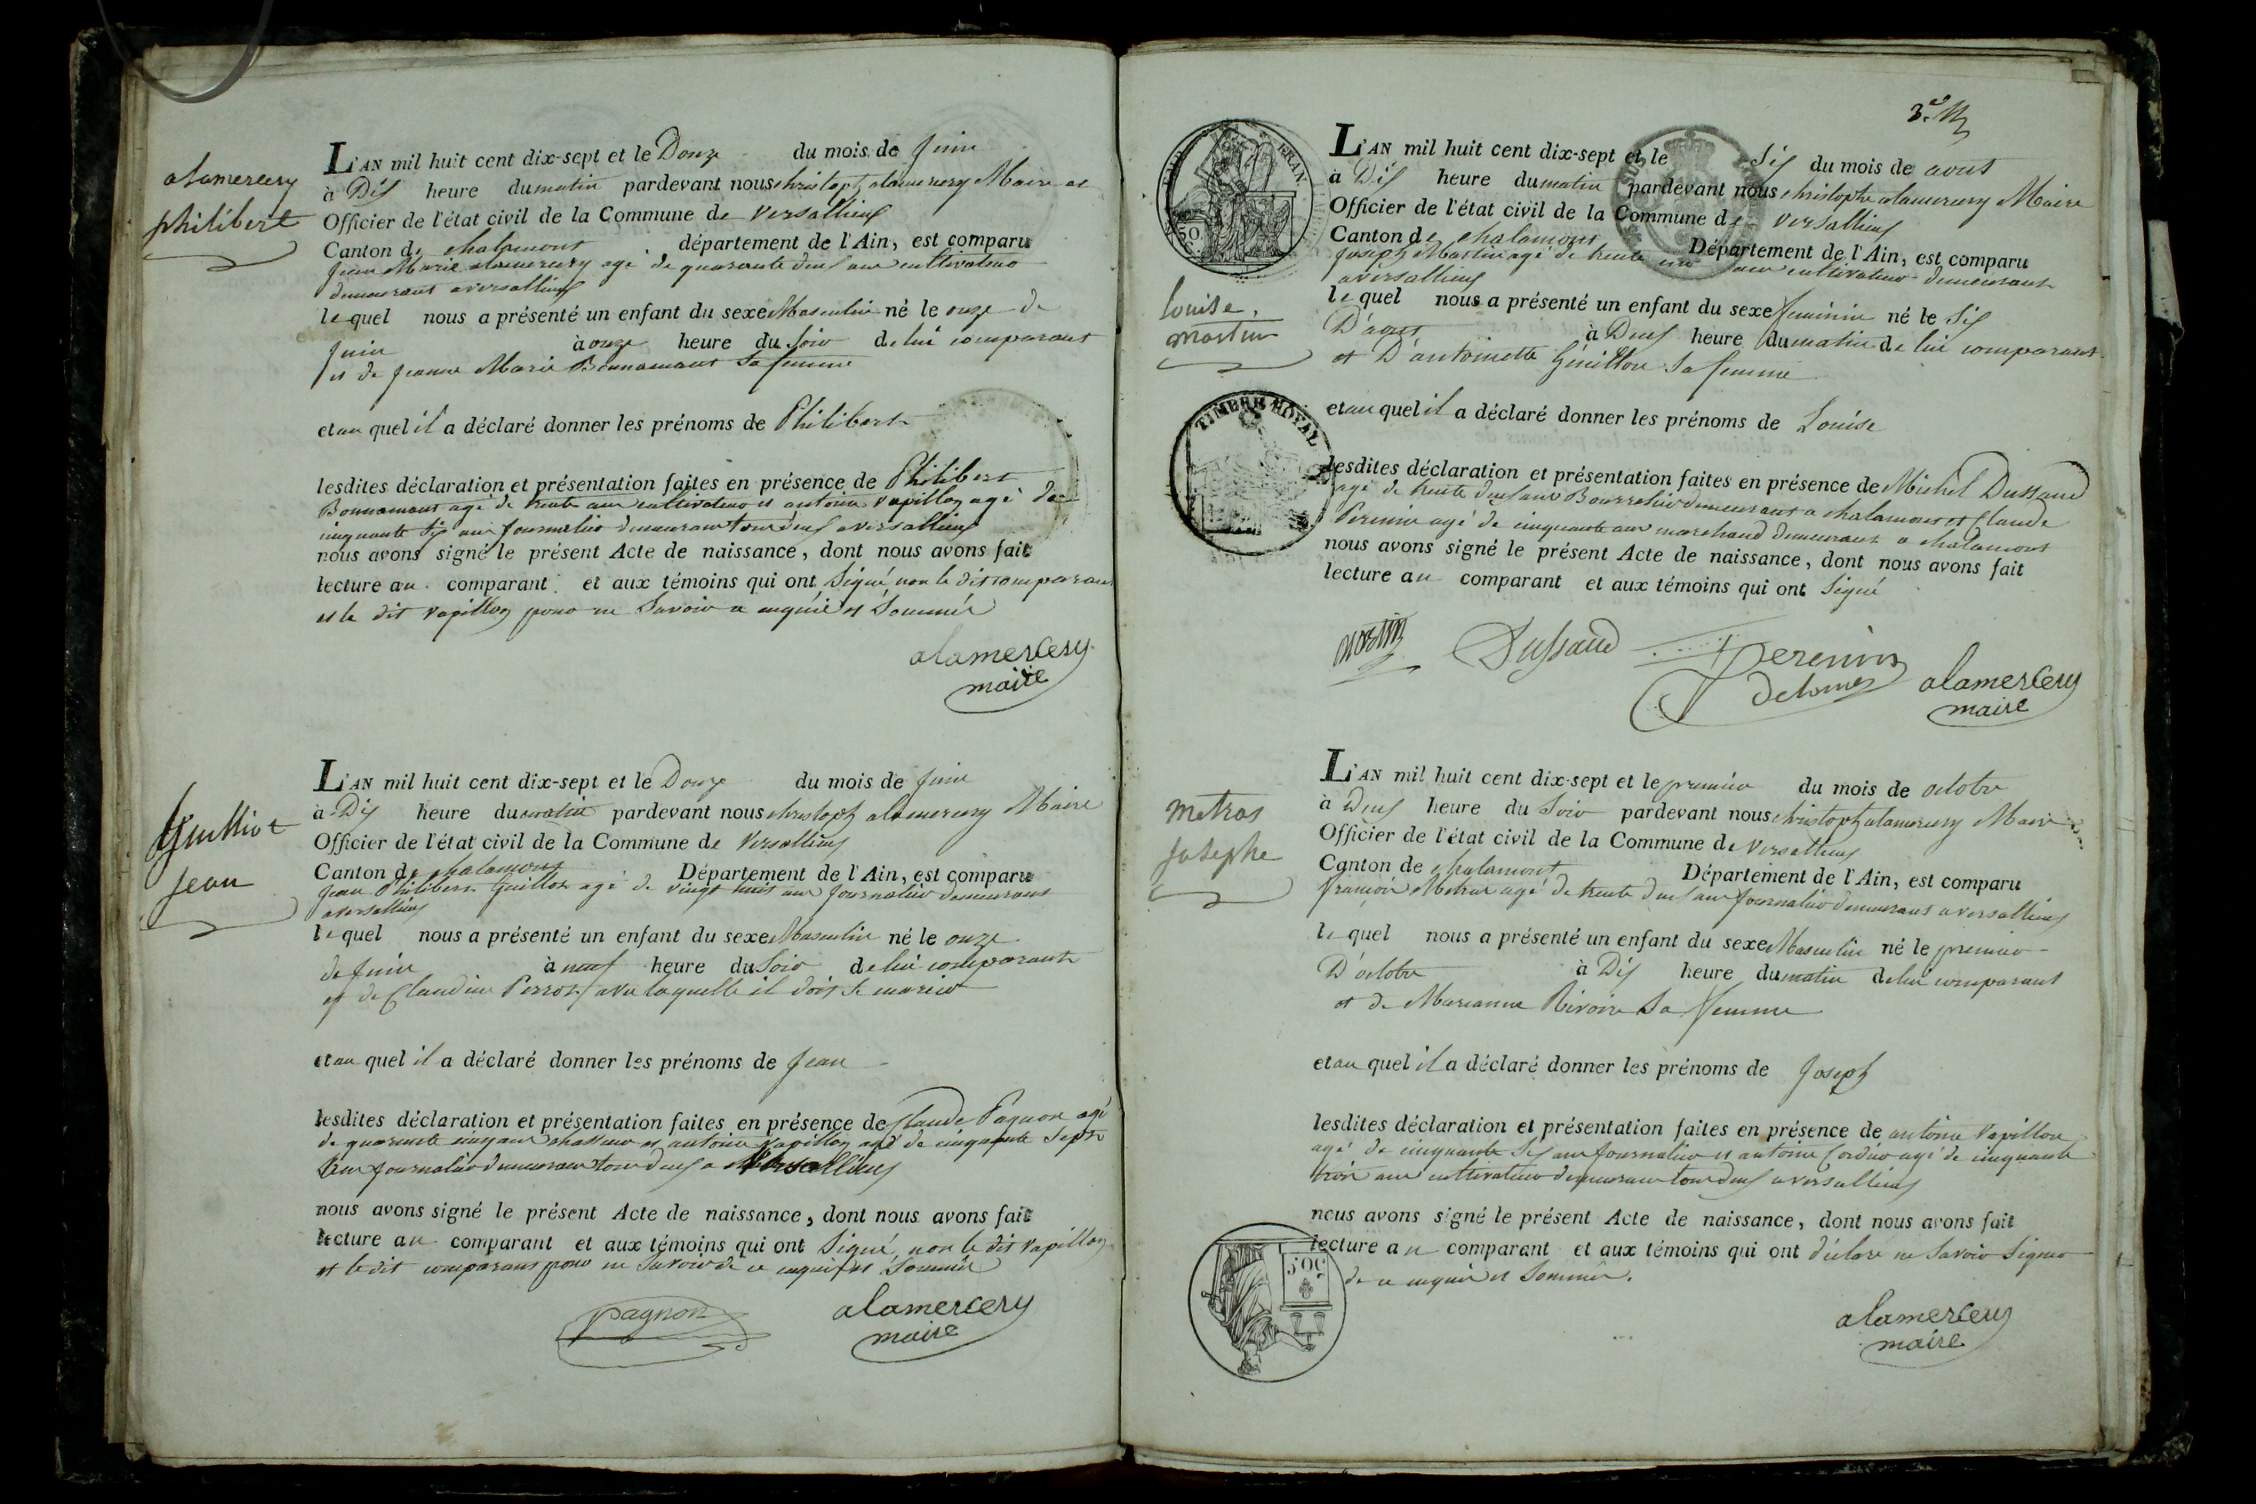 alamercery
philibert
L'AN mil huit cent dix-sept et le Douze du mois de juin
à Dix heure du matin pardevant nous christoph alamercery Maire et
Officier de l'état civil de la Commune de versallieux
Canton de chalamont département de l'Ain, est comparu
jean Marie alamercery agé de quarante deux ans cultivateur
demeurant a versallieux
lequel nous a présenté un enfant du sexe Masculin né le onze de
juin à onze heure du soir de lui comparant
et de jeanne Marie Bonnamant sa femme
et au quel il a déclaré donner les prénoms de Philibert
lesdites déclaration et présentation faites en présence de Philibert
Bonnamant agé de trente ans cultivateur et antoine vapillon agé de
cinquante six ans journalier demeurant tour deux a versallieux
nous avons signé le présent Acte de naissance, dont nous avons fait
lecture au comparant et aux témoins qui ont signé non le dit comparant
et le dit vapillon pour ne savoir a enquéri et sommér
alamercery
maire
Guilliot
jean
L'AN mil huit cent dix-sept et le Douze du mois de juin
à Dix heure du matin pardevant nous christoph alamercery Maire
Officier de l'état civil de la Commune de versallieux
Canton de chalamont Département de l'Ain, est comparu
jean Philibert Guillot agé de vingt huit ans journalier demeurant
a versallieux
lequel nous a présenté un enfant du sexe Masculin né le onze
de juin à neuf heure du soir de lui comparant
et de Claudine Perrot avec laquelle il doit se marier
et au quel il a déclaré donner les prénoms de jean
lesdites déclaration et présentation faites en présence de Claude Pagnon agé
de quarente cinq ans chasseur et antoine vapillon agé de cinquante sept
ans journalier demeurant tour deux a versallieux
nous avons signé le présent Acte de naissance, dont nous avons fait
lecture au comparant et aux témoins qui ont signé non le dit vapillon
et le dit comparant pour ne savoir de ce enquis et sommér
pagnon alamercery
maire
3.e
L'AN mil huit cent dix-sept et le Six du mois de aout
à Dix heure du matin pardevant nous christophe alamercery Maire
Officier de l'état civil de la Commune de versallieux
Canton de chalamont Département de l'Ain, est comparu
joseph Martin agé de trente ans cultivateur demeurant
a versallieux
louise,
martin
lequel nous a présenté un enfant du sexe feminin né le Six
D'aout à Deux heure du matin de lui comparant
et D'antoinette Guillon sa femme
TIMBRE ROYAL
et au quel il a déclaré donner les prénoms de Louise
lesdites déclaration et présentation faites en présence de Michel Dussaud
agé de trente deux ans Bourrelier demeurant a chalamont et Claude
Perenin agé de cinquante ans marchand demeurant a chalamont
nous avons signé le présent Acte de naissance, dont nous avons fait
lecture au comparant et aux témoins qui ont signé
martin Dussaud Perenin
alamercery
maire
metras
josephe
L'AN mil huit cent dix-sept et le premier du mois de octobre
à Deux heure du Soir pardevant nous christoph alamercery Maire
Officier de l'état civil de la Commune de versallieux
Canton de chalamont Département de l'Ain, est comparu
françois Metras agé de trente deux ans journalier demeurant a versallieux
lequel nous a présenté un enfant du sexe Masculin né le premier
D'octobre à Dix heure du matin de lui comparant
et de Marianne Rivoire sa femme
et au quel il a déclaré donner les prénoms de joseph
lesdites déclaration et présentation faites en présence de antoine vapillon
agé de cinquante six ans journalier et antoine Cordier agé de cinquante
trois ans cultivateur demeurant tour deux a versallieux
nous avons signé le présent Acte de naissance, dont nous avons fait
lecture au comparant et aux témoins qui ont déclare ne savoir signer
de ce enquis et sommér.
50 C
alamercery
maire